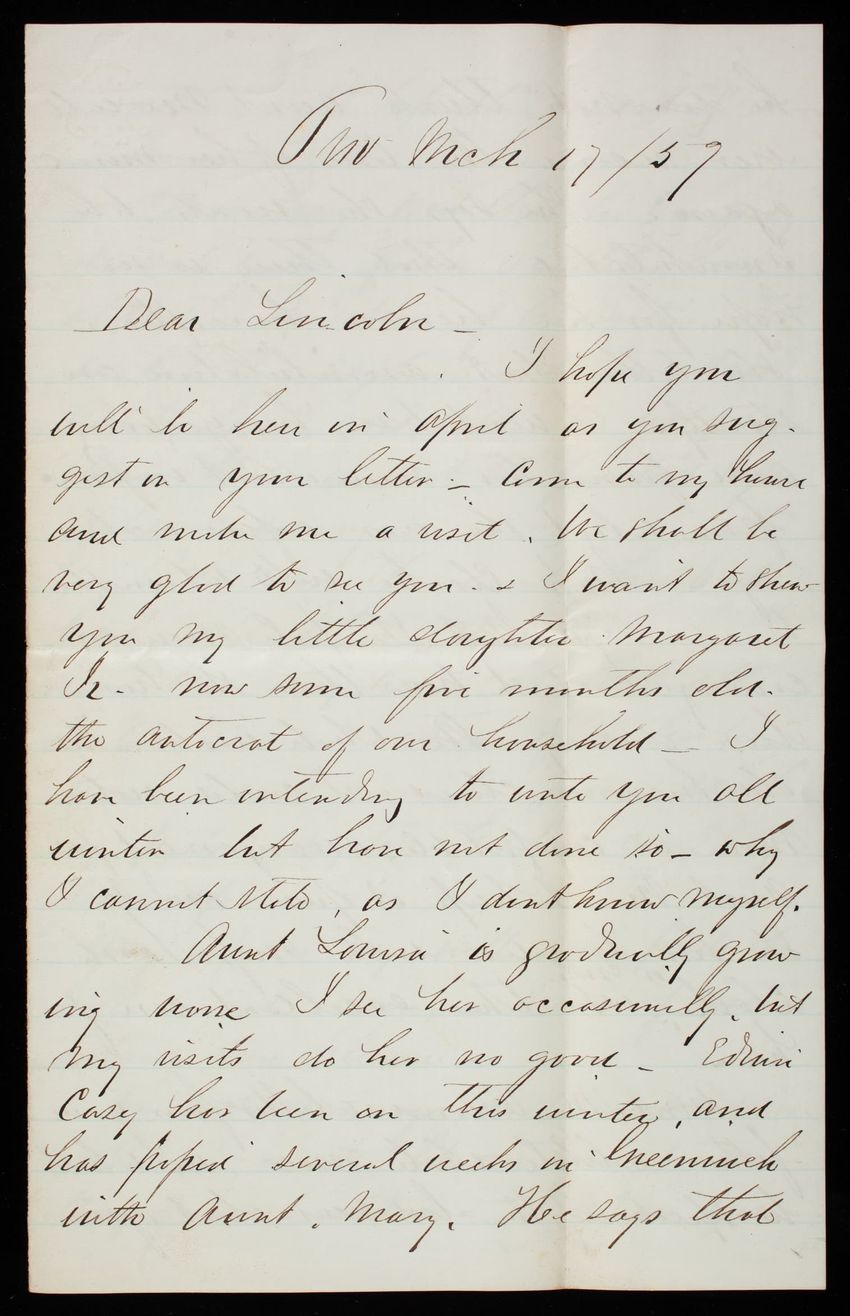 Prov Mch 17/59
Dear Lincoln –
I hope you
will be here in April as you sug-
gest in your letter – Come to my house
and make me a visit. We shall be
very glad to see you. & I want to shew
you my little daughter Margaret
Jr. now some five months old.
the autocrat of our household – I
have been intending to write you all
winter but have not done so – why
I cannot state, as I dont know myself.
Aunt Louisa is gradually grow
ing worse I see her occasionally, but
my visits do her no good – Edwin
Casey has been on this winter, and
has passed several weeks in Greenwich
with Aunt Mary. He says that